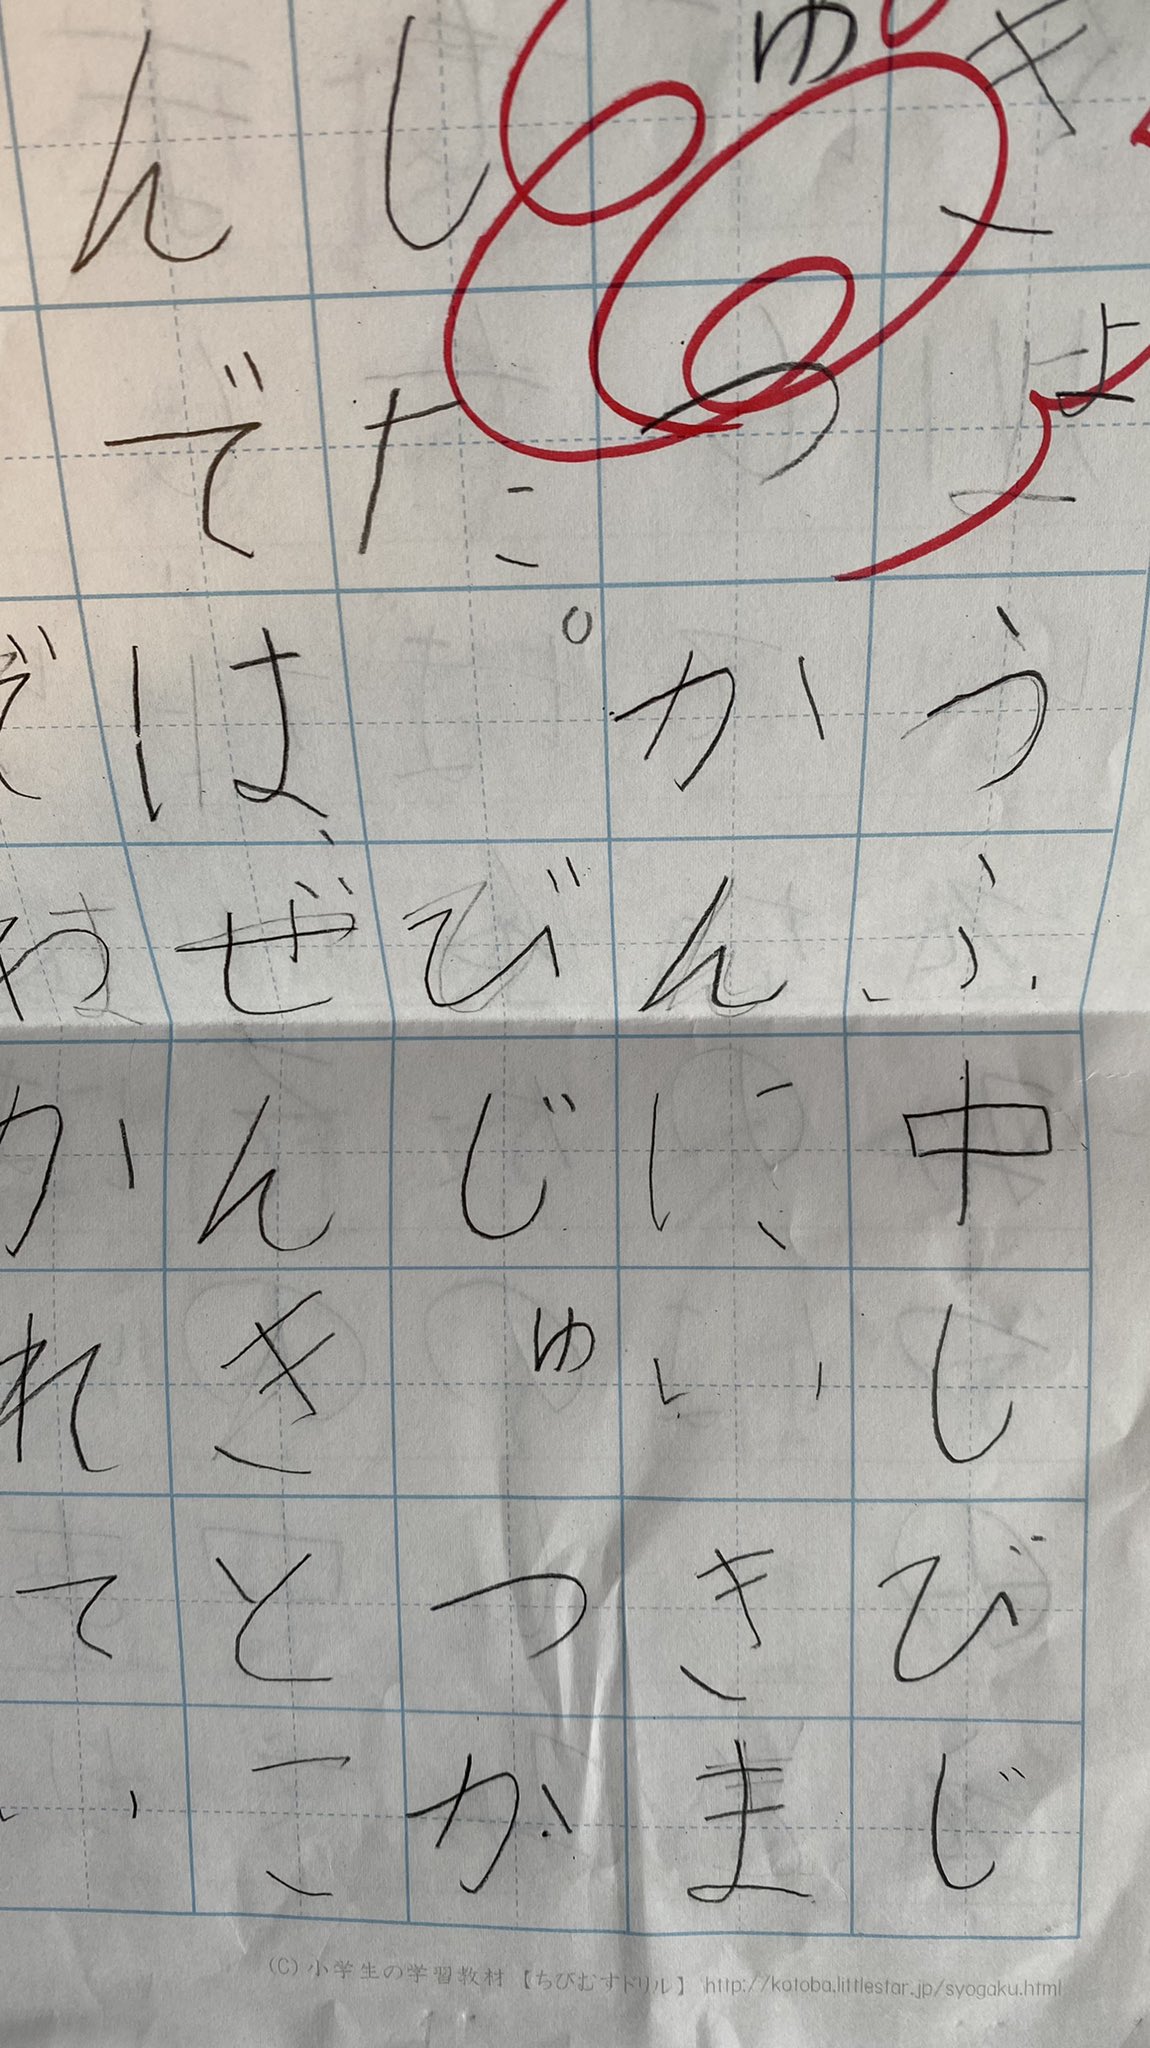 きょうふ中しびじ
ゅつかんにいきま
した。びじゅつか
んでは、ぜんきとこ
かれてい
(C) 小学生の学習教材 【ちびむすドリル】 http://kotoba.littlestar.jp/syogaku.html